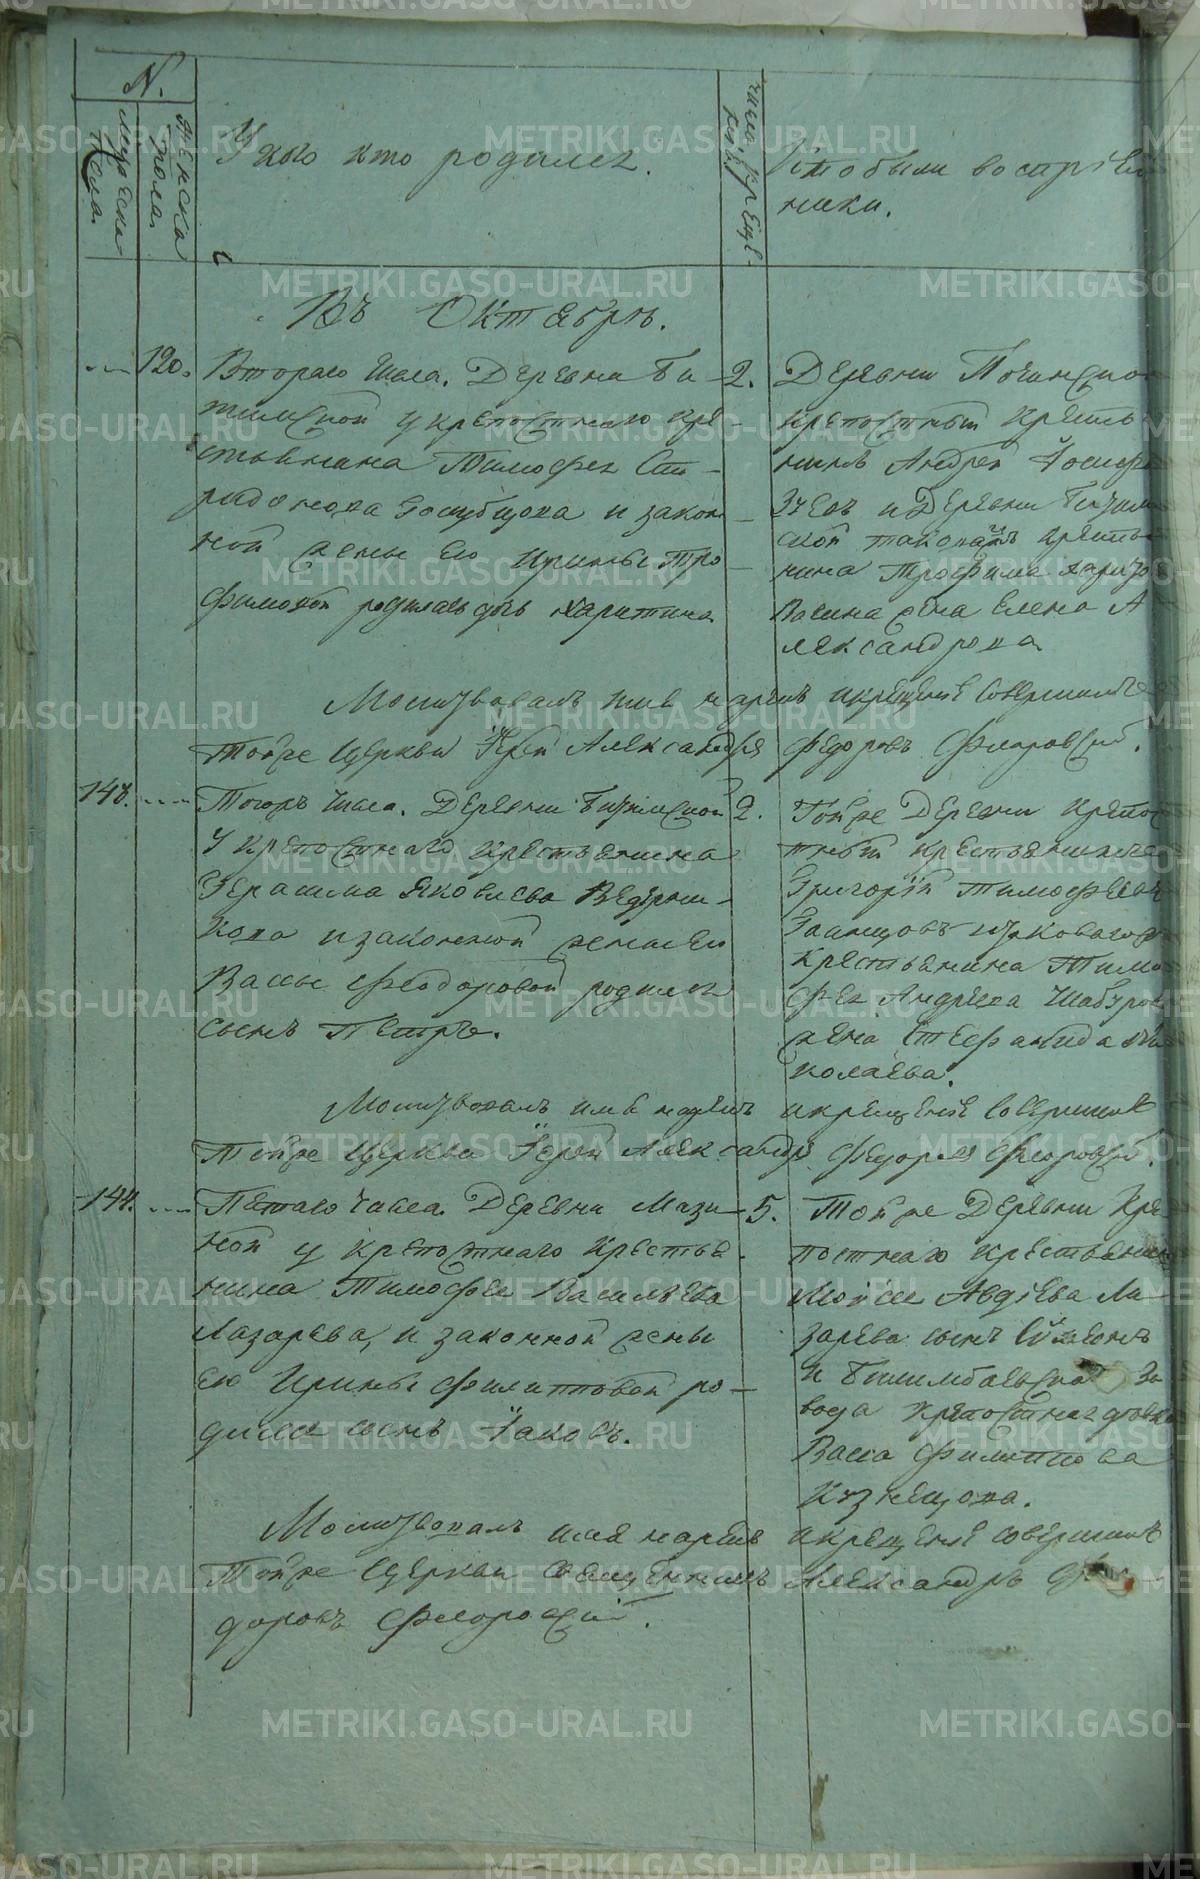 N.
Мужеска пола.
Женска пола.
У кого кто родился.
число крещ.
Кто были воспріем
ники.
Въ Октябрѣ.
120. Втораго числа. Деревни Би
2. Деревни Починской
крепостнаго кре
стьянина Тимофея Спи
ридонова Голубцова и закон
ной жены его Ирины Тро
фимовой родилась дочь Харитина
крепостный крестья
нинъ Андрей
Зуевъ и Деревни
ской такова крестья
нина Трофима
жена Елена А
лександрова
Молитвовалъ имя нарекъ и крещеніе совершилъ
Тойже Церкви Іерей Александръ Федоровъ Флоровскій.
143. Тогожъ числа. Деревни
У крепостнаго крестьянина
Герасима Яковлева Ведерни
кова и законной жены его
Вассы Феодоровой родился
сынъ Петръ.
2. Тойже Деревни крепос
тный крестьянинъ
Григорій Тимофеевъ
крестьянина Тимо
фея Андреева Шабуров
жена Стефанида Ни
колаева.
Молитвовалъ имя нарекъ и крещеніе совершилъ
Тойже Церкви Іерей Александръ Федоровъ Флоровскій.
144. Пятаго числа. Деревни Мази
ной у крепостнаго Крестья
нина Тимофея Васильева
Лазарева, и законной жены
его Ирины Филипповой ро
дился сынъ Іаковъ.
5. Тойже Деревни Кре
постнаго крестьянина
Мойсея Авдіева Ла
зарева сынъ
и Билимбаевскаго За
вода крепостная девка
Васса Филиппова
Кузнецова.
Молитвовалъ имя нарекъ и крещеніе совершилъ
Тойже Церкви Священникъ Александръ Фе
доровъ Флоровскій.
METRIKI.GASO-URAL.RU